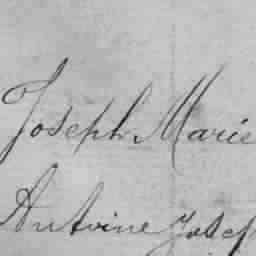 Joseph Marie
Antoine Josep